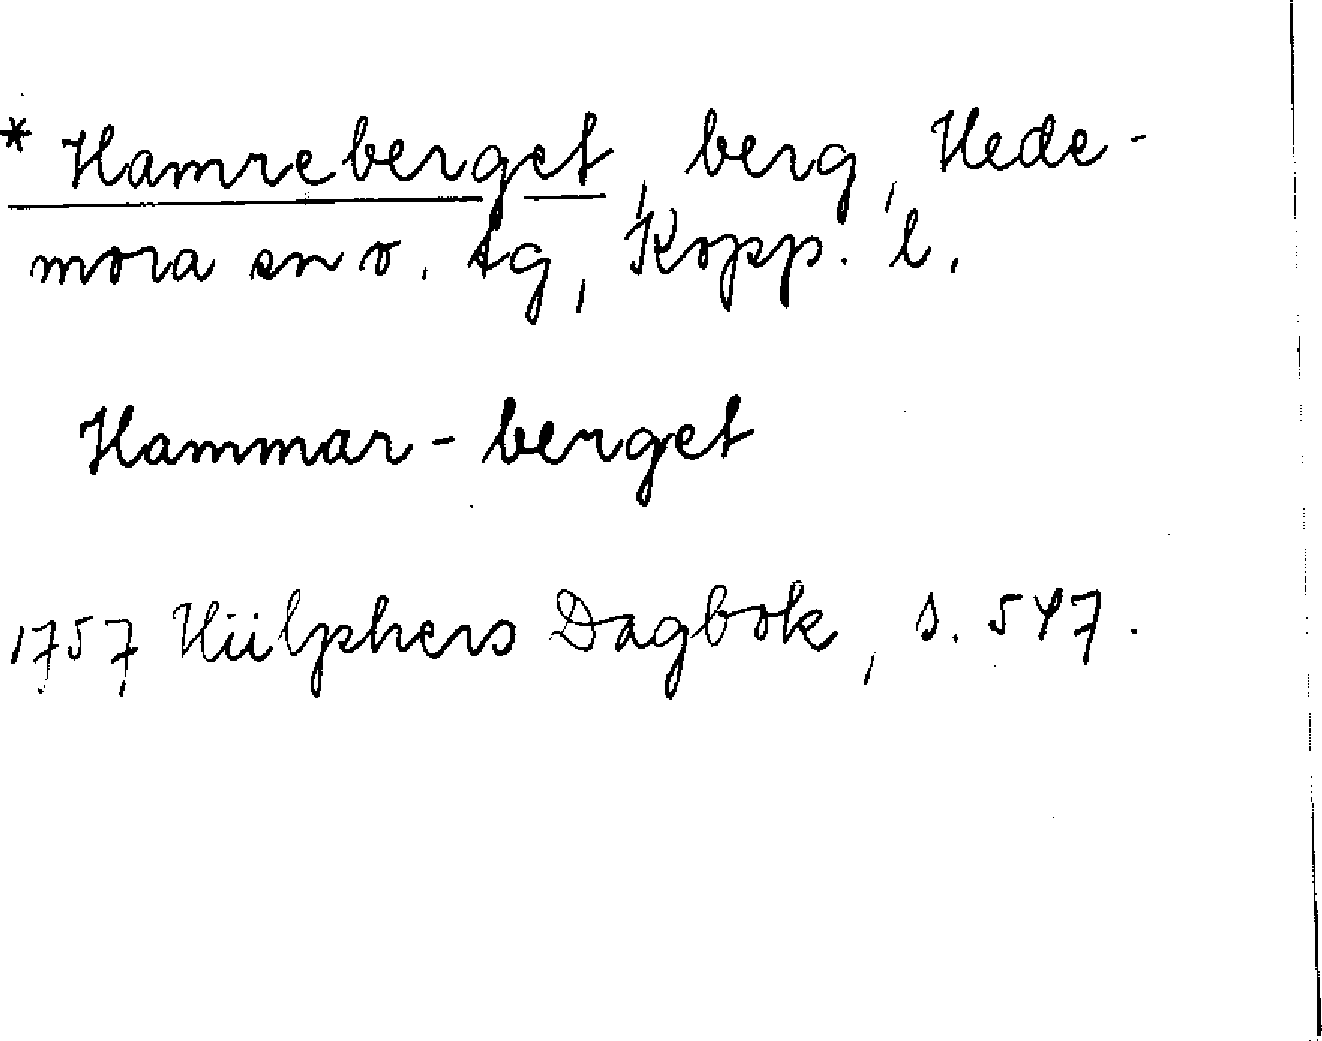 * Hamreberget, berg, Hede-
mora sn o. tg, Kopp. l.
Hammar-berget
1757 Hülphers Dagbok, s. 547.